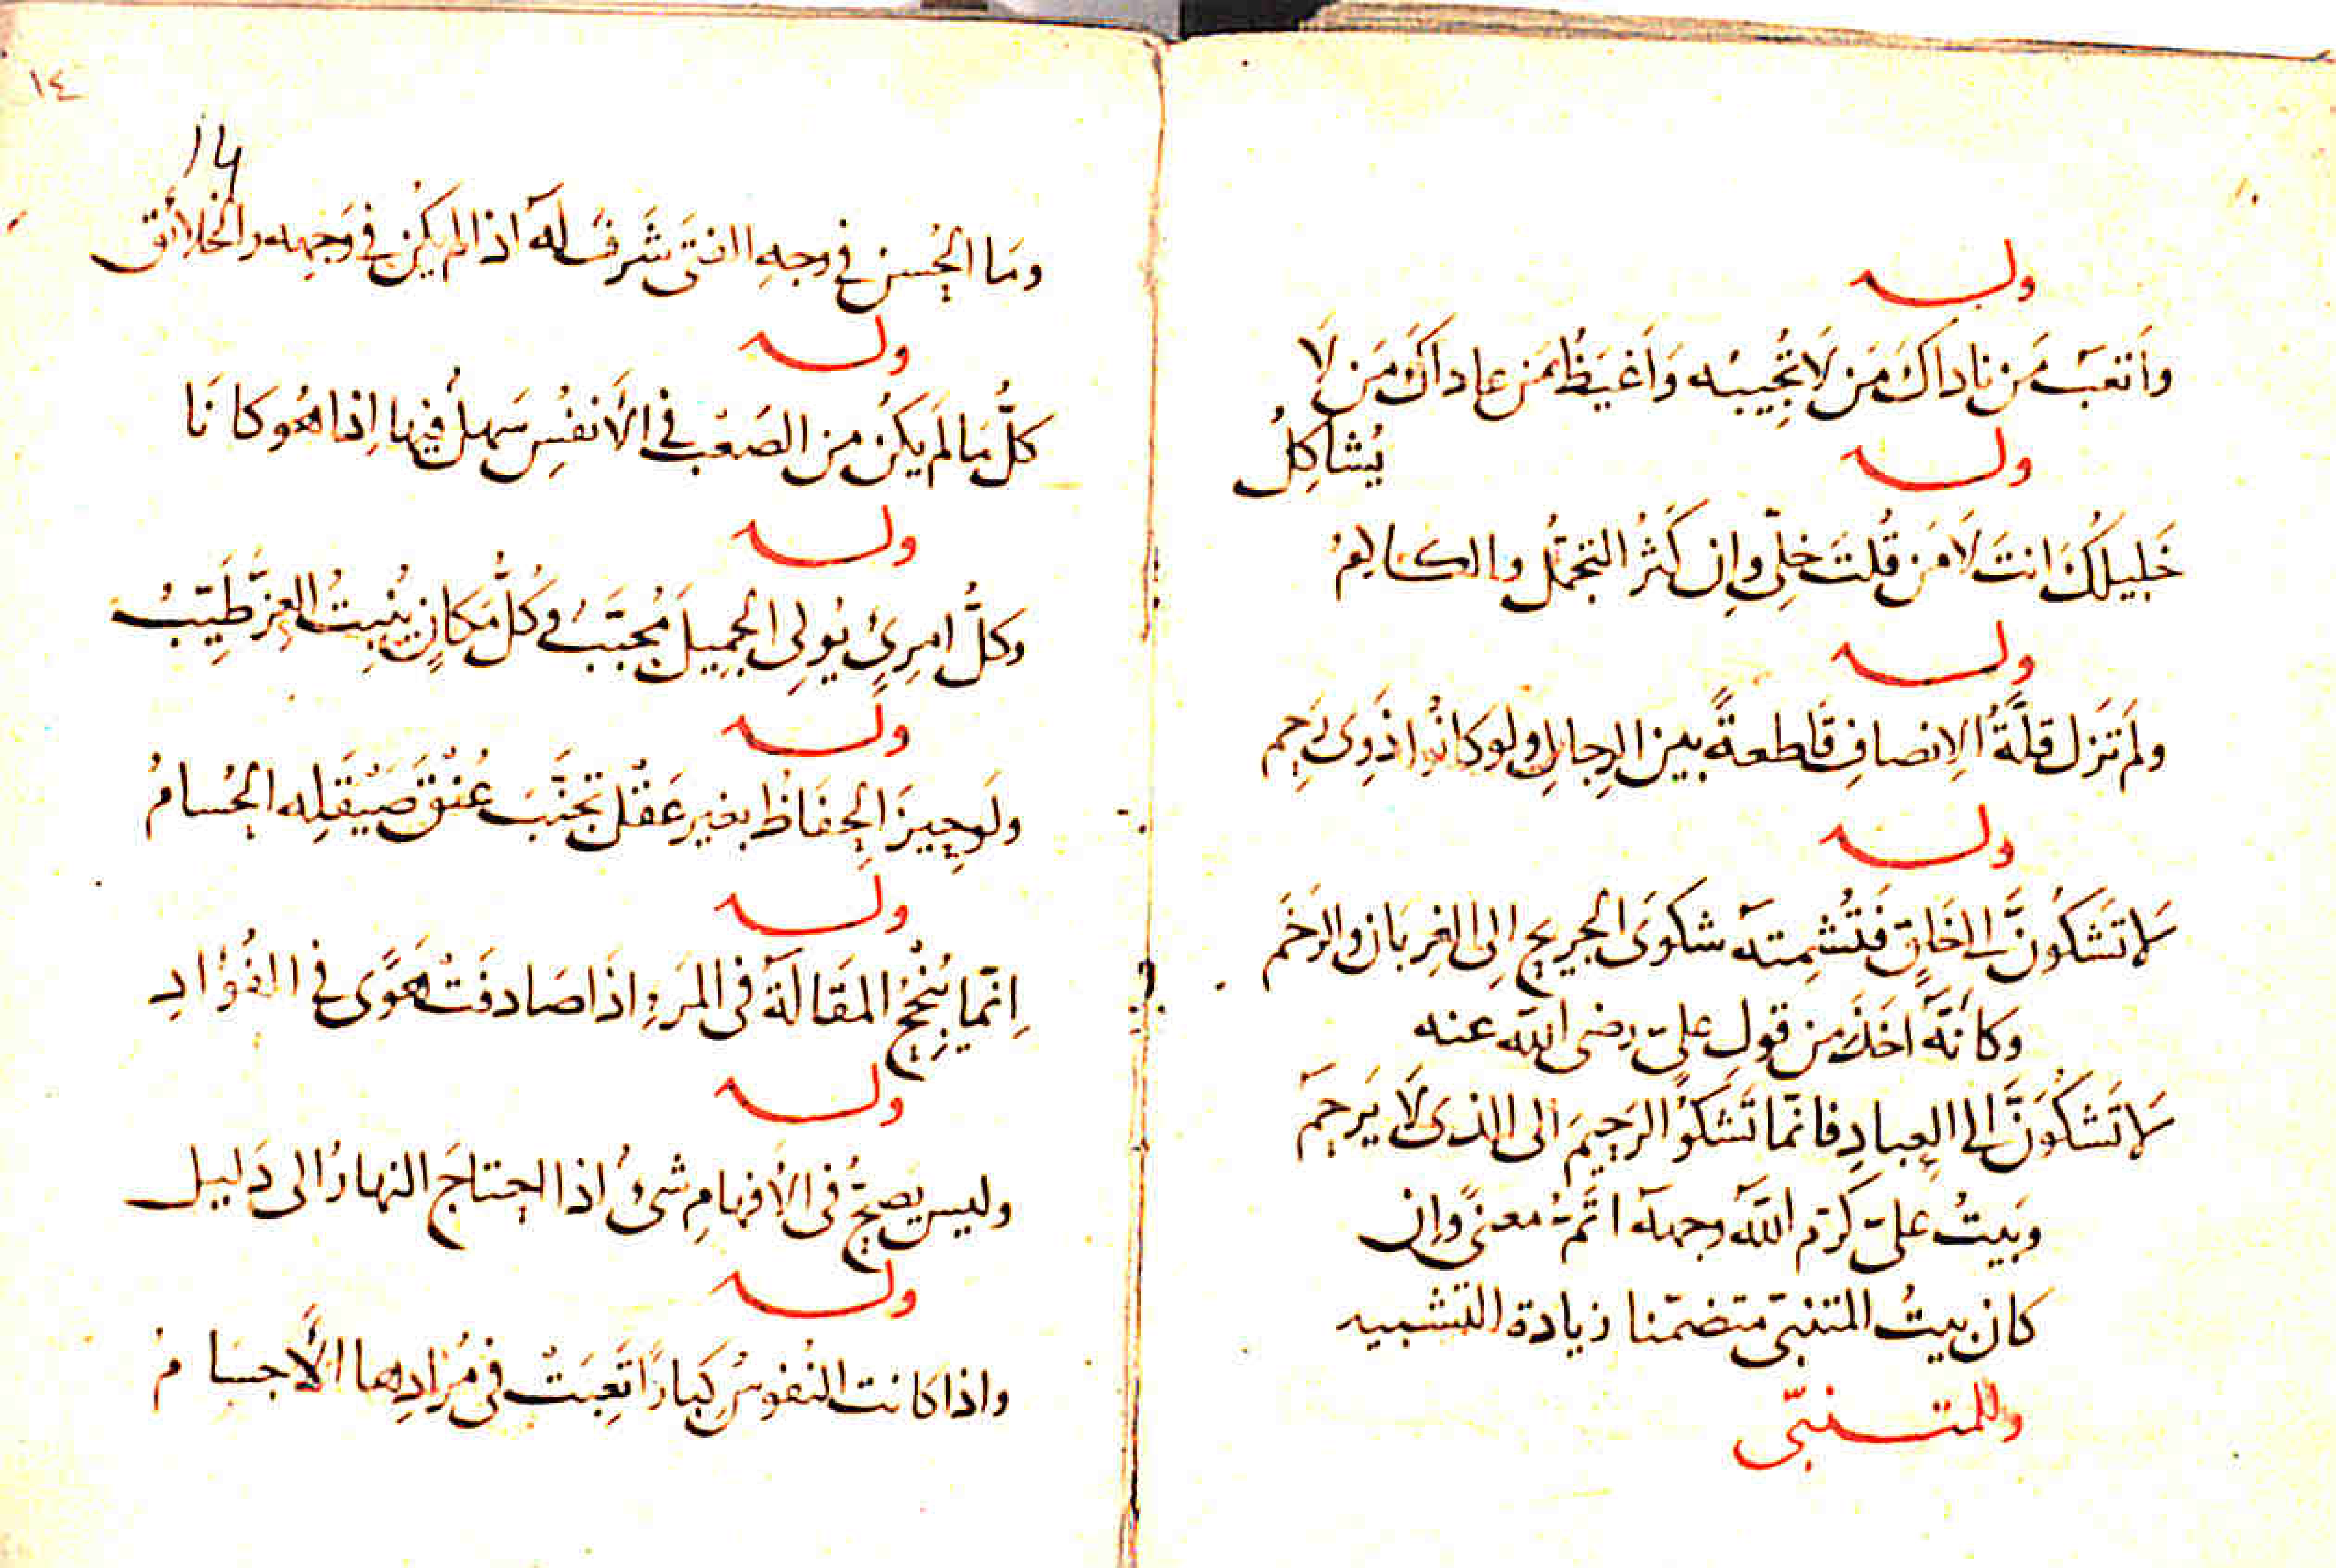 وله
واَتعَبُ مَن ناداكَ مَن لَا تُجِيبُه وَاَغيَظُ مَن عاداكَ مَن لَا
يُشاكِلُ
وله
خَليلُكَ انتَ لَا مَن قُلتَ خِلّى واِن كَثُرَ التجَمُّلُ والكلامُ
وله
ولم تَزَل قلَّةُ الاِنصافِ قَاطعةً بين الرِجالِ ولو كانُوا ذَوِى رَحِم
وله
لا تَشكُونَّ الى خَلقٍ فَتُشمِتَه شكوَى الجريحِ اِلى الغِربَان والرَخَم
وكأنّه اَخَذَ من قولِ علىّ رضى الله عنه
لا تَشكُونَّ الى العِبادِ فانّما تَشكُو الرَحِيمَ الى الذى لَا يَرحَم
وبَيتُ علىّ كرّم اللّه وجهه اتَمُّ معنىً واِن
كان بيتُ المتنبّى متضمّنا زيادة التشبيه
وللمتنبّى
١٤
14
ومَا الحُسن فى وجهِ الفتَى شَرفٌ له اذا لم يكن فى وَجهِه والخَلائق
وله
كلُّ مَا لَم يَكُن من الصَعْب فى الاَنفُسِ سَهلٌ فيها اِذا هُو كانَا
وله
وكلُّ امرِئٍ يُولِى الجمِيلَ مُحبَّبٌ وكُلُّ مَكانٍ يُنبِتُ العِزَّ طَيّبُ
وله
ولَو حِيزَ الحِفَاظُ بغيرِ عَقْلٍ تَجنَّبَ عُنْقَ صَيْقَلِه الحُسامُ
وله
اِنّما تُنجِحُ المَقالَة فى المَرءِ اذَا صَادفَتْ هَوًى فى الفُؤادِ
وله
وليس يَصِحُّ فى الاَفهامِ شئٌ اذا احتاجَ النهارُ الى دَليل
وله
واذا كانت النُفوسُ كِبارًا تَعِبَتْ فى مُرَادِها الاَجسَامُ